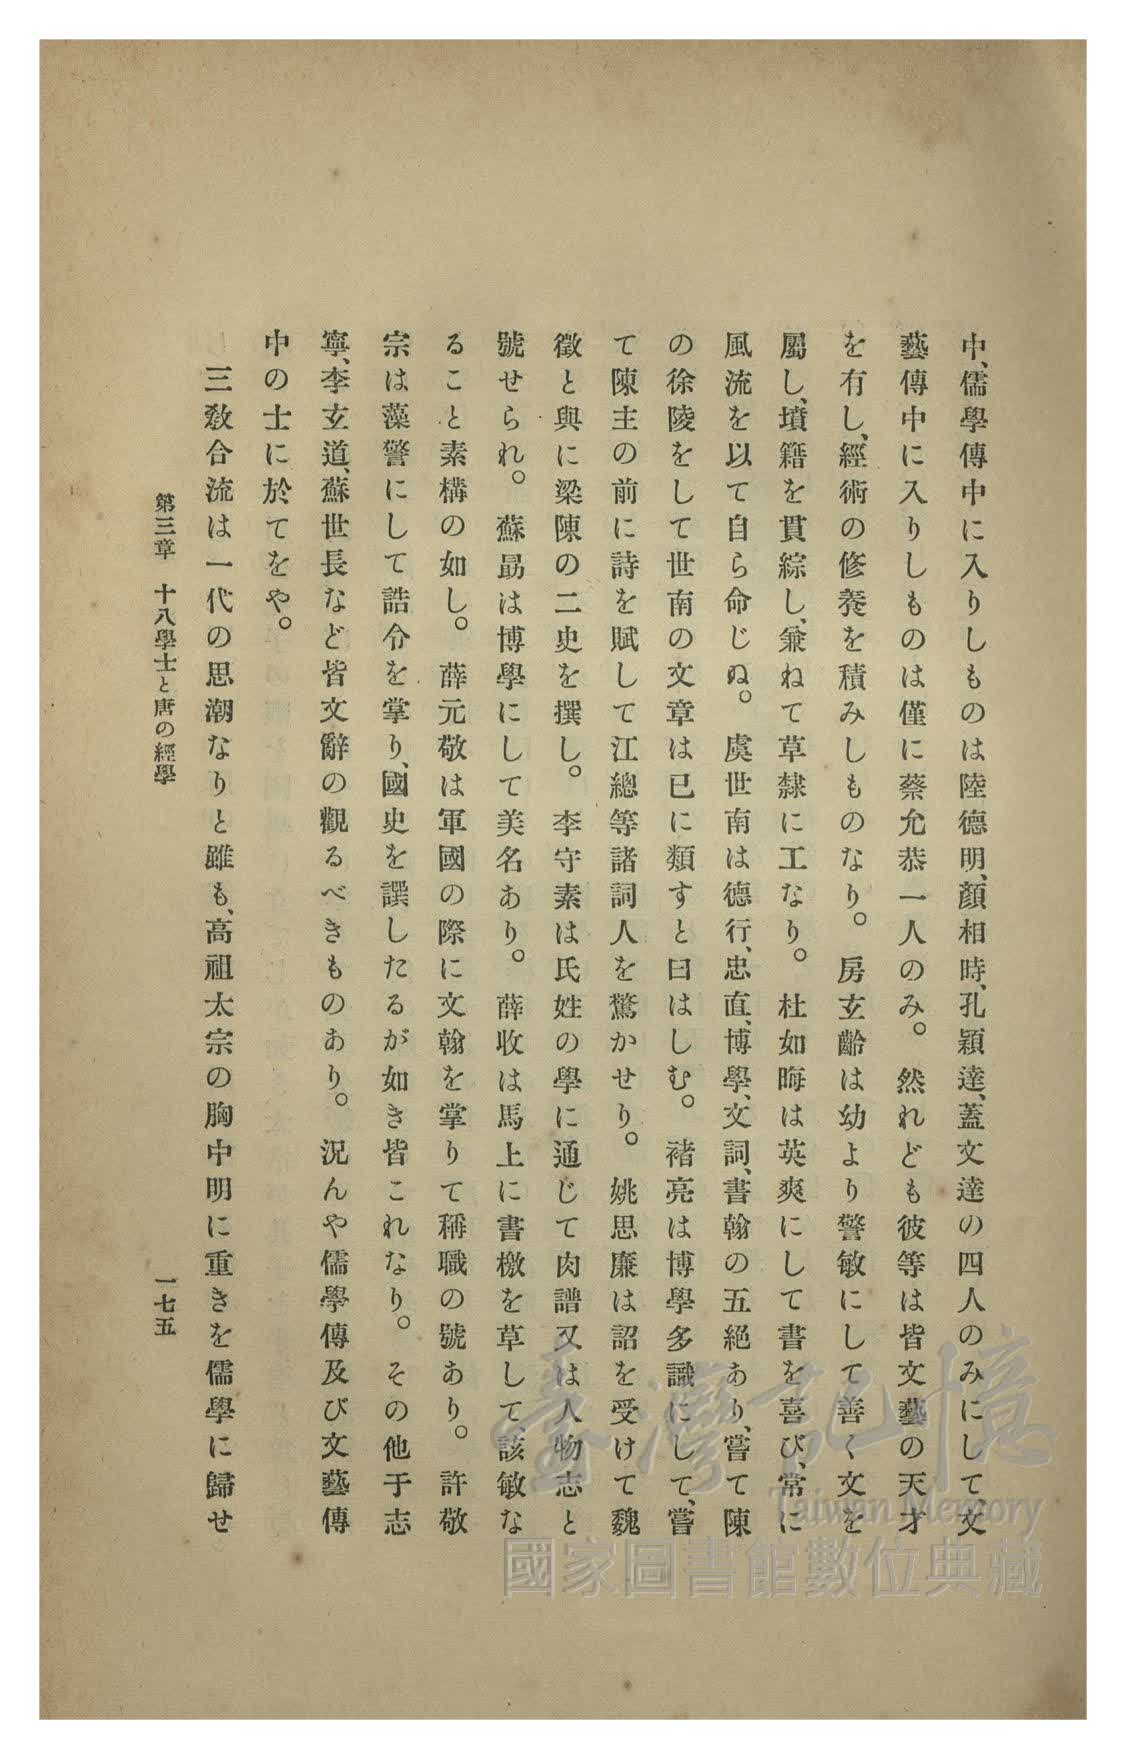 中、儒學傳中に入りしものは陸德明、顏相時、孔穎達、蓋文達の四人のみにして、文
藝傳中に入りしものは僅に蔡允恭一人のみ。然れども彼等は皆文藝の天才
を有し、經術の修養を積みしものなり。房玄齡は幼より警敏にして善く文を
屬し、墳籍を貫綜し、兼ねて草隸に工なり。杜如晦は英爽にして書を喜び、常に
風流を以て自ら命じぬ。虞世南は德行、忠直、博學、文詞、書翰の五絕あり、嘗て陳
の徐陵をして世南の文章は已に類すと曰はしむ。褚亮は博學多識にして、嘗
て陳主の前に詩を賦して江總等諸詞人を驚かせり。姚思廉は詔を受けて魏
徵と與に梁陳の二史を撰し。李守素は氏姓の學に通じて肉譜又は人物志と
號せられ。蘇勗は博學にして美名あり。薛收は馬上に書檄を草して、該敏な
ること素構の如し。薛元敬は軍國の際に文翰を掌りて稱職の號あり。許敬
宗は藻警にして誥令を掌り、國史を譔したるが如き皆これなり。その他于志
寧、李玄道、蘇世長など皆文辭の觀るべきものあり。況んや儒學傳及び文藝傳
中の士に於てをや。
三敎合流は一代の思潮なりと雖も、高祖太宗の胸中明に重きを儒學に歸せ
第三章 十八學士と唐の經學 一七五
臺灣記憶
Taiwan Memory
國家圖書館數位典藏